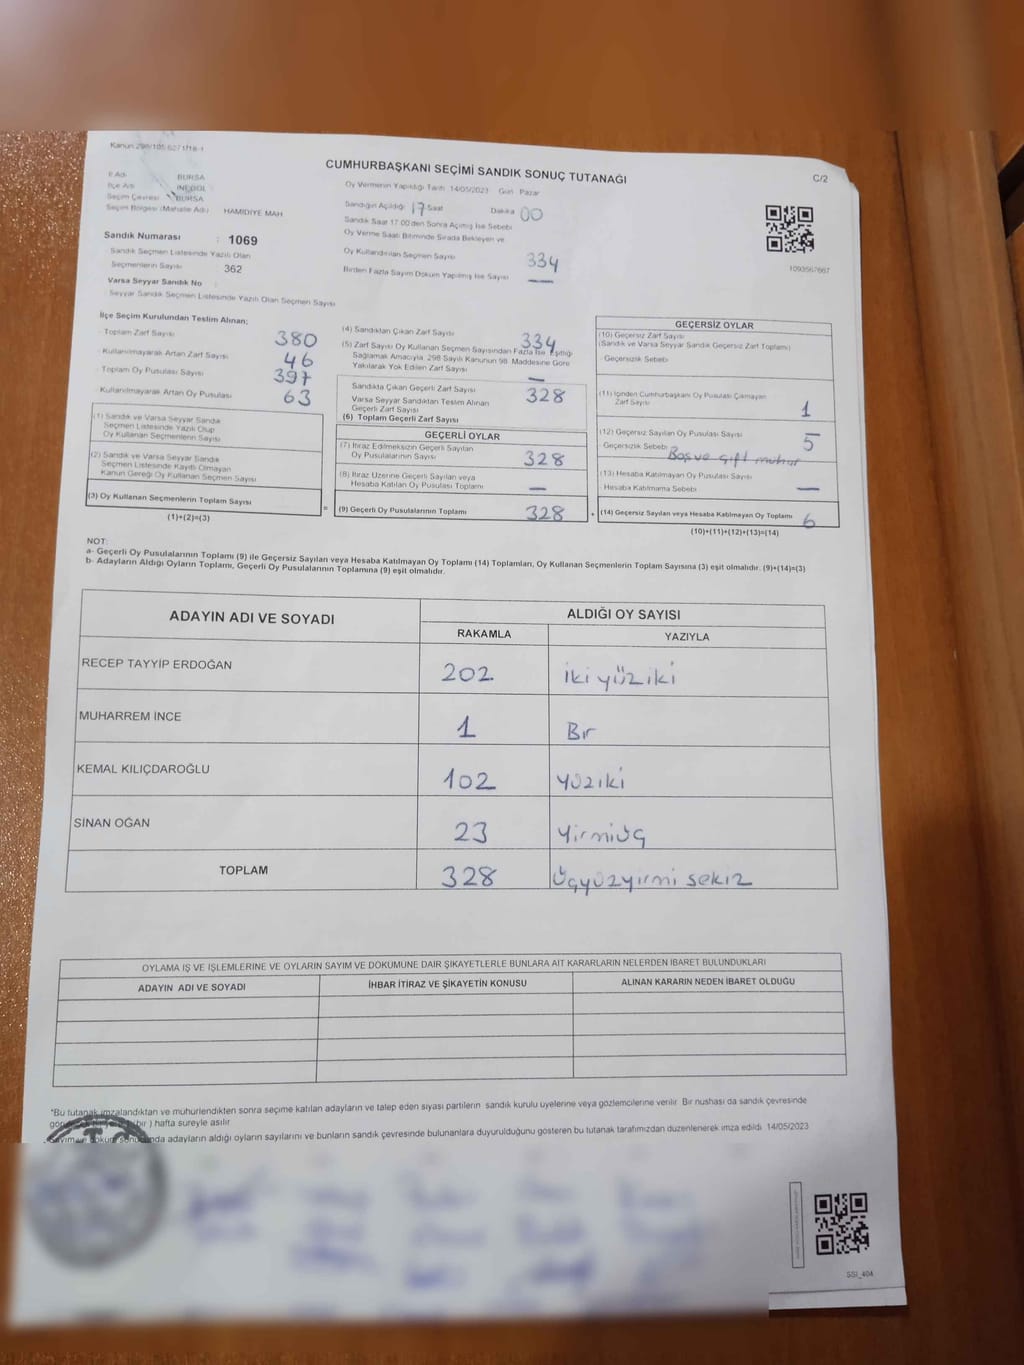 Kanun 298/105 6271/18-1
CUMHURBAŞKANI SEÇİMİ SANDIK SONUÇ TUTANAĞI
C/2
İl Adı BURSA
İlçe Adı İNEGÖL
Seçim Çevresi BURSA
Seçim Bölgesi (Mahalle Adı) HAMİDİYE MAH
Sandık Numarası : 1069
Sandık Seçmen Listesinde Yazılı Olan
Seçmenlerin Sayısı 362
Varsa Seyyar Sandık No :
Seyyar Sandık Seçmen Listesinde Yazılı Olan Seçmen Sayısı
Oy Vermenin Yapıldığı Tarih 14/05/2023 Gün Pazar
Sandığın Açıldığı 17 Saat Dakika 00
Sandık Saat 17.00'den Sonra Açılmış İse Sebebi
Oy Verme Saati Bitiminde Sırada Bekleyen ve
Oy Kullandırılan Seçmen Sayısı 334
Birden Fazla Sayım Döküm Yapılmış İse Sayısı —
1093567667
İlçe Seçim Kurulundan Teslim Alınan;
Toplam Zarf Sayısı 380
Kullanılmayarak Artan Zarf Sayısı 46
Toplam Oy Pusulası Sayısı 397
Kullanılmayarak Artan Oy Pusulası 63
(1) Sandık ve Varsa Seyyar Sandık
Seçmen Listesinde Yazılı Olup
Oy Kullanan Seçmenlerin Sayısı
(2) Sandık ve Varsa Seyyar Sandık
Seçmen Listesinde Kayıtlı Olmayan
Kanun Gereği Oy Kullanan Seçmen Sayısı
(3) Oy Kullanan Seçmenlerin Toplam Sayısı
(1)+(2)=(3)
(4) Sandıktan Çıkan Zarf Sayısı 334
(5) Zarf Sayısı Oy Kullanan Seçmen Sayısından Fazla İse Eşitliği
Sağlamak Amacıyla 298 Sayılı Kanunun 98. Maddesine Göre
Yakılarak Yok Edilen Zarf Sayısı —
Sandıkta Çıkan Geçerli Zarf Sayısı 328
Varsa Seyyar Sandıktan Teslim Alınan
Geçerli Zarf Sayısı
(6) Toplam Geçerli Zarf Sayısı
GEÇERLİ OYLAR
(7) İtiraz Edilmeksizin Geçerli Sayılan
Oy Pusulalarının Sayısı 328
(8) İtiraz Üzerine Geçerli Sayılan veya
Hesaba Katılan Oy Pusulası Toplamı —
= (9) Geçerli Oy Pusulalarının Toplamı 328 +
GEÇERSİZ OYLAR
(10) Geçersiz Zarf Sayısı
(Sandık ve Varsa Seyyar Sandık Geçersiz Zarf Toplamı)
Geçersizlik Sebebi
(11) İçinden Cumhurbaşkanı Oy Pusulası Çıkmayan
Zarf Sayısı 1
(12) Geçersiz Sayılan Oy Pusulası Sayısı 5
Geçersizlik Sebebi Boş ve çift mühür
(13) Hesaba Katılmayan Oy Pusulası Sayısı
Hesaba Katılmama Sebebi —
(14) Geçersiz Sayılan veya Hesaba Katılmayan Oy Toplamı 6
(10)+(11)+(12)+(13)=(14)
NOT:
a- Geçerli Oy Pusulalarının Toplamı (9) ile Geçersiz Sayılan veya Hesaba Katılmayan Oy Toplamı (14) Toplamları, Oy Kullanan Seçmenlerin Toplam Sayısına (3) eşit olmalıdır. (9)+(14)=(3)
b- Adayların Aldığı Oyların Toplamı, Geçerli Oy Pusulalarının Toplamına (9) eşit olmalıdır.
ADAYIN ADI VE SOYADI ALDIĞI OY SAYISI
RAKAMLA YAZIYLA
RECEP TAYYİP ERDOĞAN 202 iki yüz iki
MUHARREM İNCE 1 Bir
KEMAL KILIÇDAROĞLU 102 yüziki
SİNAN OĞAN 23 yirmiüç
TOPLAM 328 üçyüzyirmi sekiz
OYLAMA İŞ VE İŞLEMLERİNE VE OYLARIN SAYIM VE DÖKÜMÜNE DAİR ŞİKAYETLERLE BUNLARA AİT KARARLARIN NELERDEN İBARET BULUNDUKLARI
ADAYIN ADI VE SOYADI İHBAR İTİRAZ VE ŞİKAYETİN KONUSU ALINAN KARARIN NEDEN İBARET OLDUĞU
*Bu tutanak imzalandıktan ve mühürlendikten sonra seçime katılan adayların ve talep eden siyasi partilerin sandık kurulu üyelerine veya gözlemcilerine verilir. Bir nüshası da sandık çevresinde
bir ) hafta süreyle asılır
adayların aldığı oyların sayılarını ve bunların sandık çevresinde bulunanlara duyurulduğunu gösteren bu tutanak tarafımızdan düzenlenerek imza edildi. 14/05/2023
SSI_404